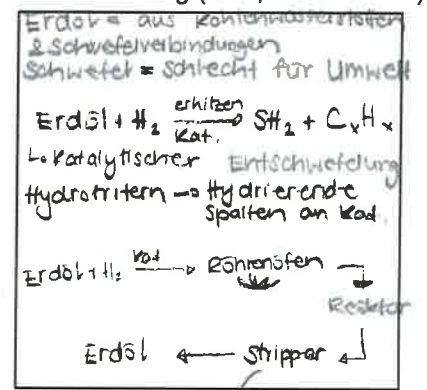 Erdöl = aus Kohlenwasserstoffen
& Schwefelverbindungen
Schwefel = schlecht für Umwelt
Erdöl + H₂ erhitzen Kat. → SH₂ + CₓHₓ
↳ Katalytischer Entschwefelung
Hydrotritern → Hydrierende
Spalten an Kat.
Erdöl + H₂ Kat → Röhrenöfen →
Reaktor
Erdöl ← Strippar ←